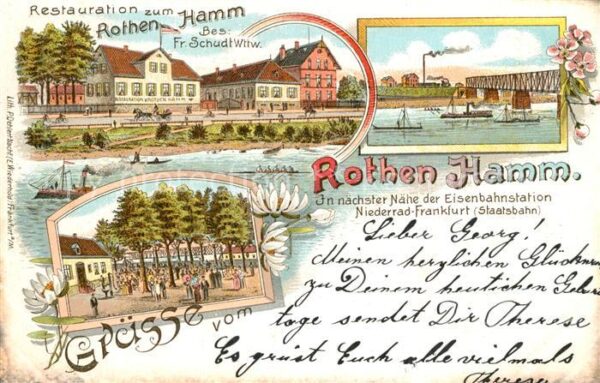 Restauration zum
Rothen Hamm
Bes:
Fr. Schudt Wttw.
RESTAURATION ROTHEN HAMM
Rothen Hamm.
In nächster Nähe der Eisenbahnstation
Niederrad-Frankfurt (Staatsbahn)
Grüsse vom
Lieber Georg!
Meinen herzlichen Glückwun
zu Deinem heutichen Gebur
tage sendet Dir Therese
Es grüst Euch alle vielmals
Therese